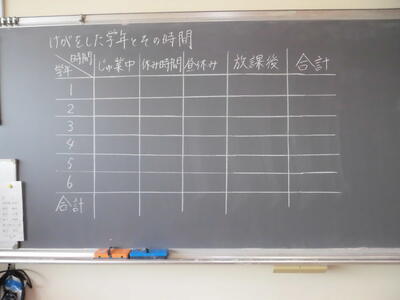 けがをした学年とその時間
時間
学年 じゅ業中 休み時間 昼休み 放課後 合計
1
2
3
4
5
6
合計